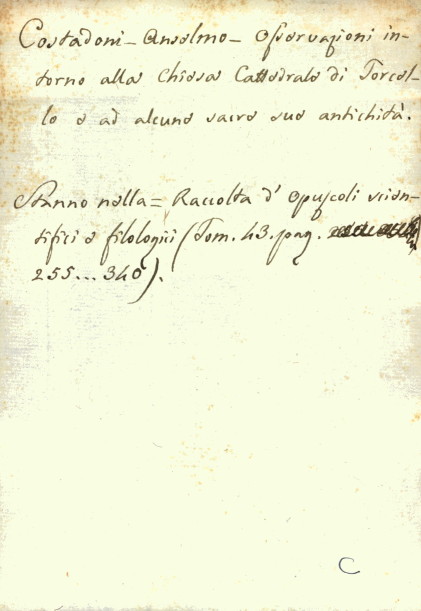 Costadoni - Anselmo - Osservazioni in-
torno alla Chiesa Cattedrale di Torcel-
lo e ad alcune sacre sue antichità.
Stanno nella = Raccolta d'opuscoli scien-
tifici e filologici (Tom. 43. pag.
255...340).
C